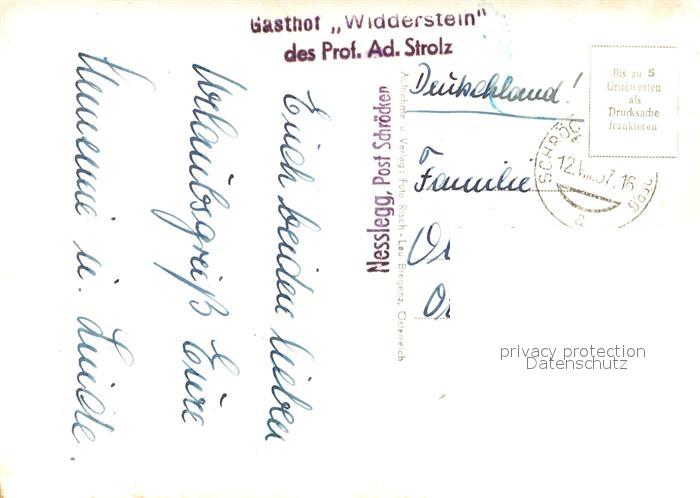 Gasthof „Widderstein"
des Prof. Ad. Strolz
Nesslegg, Post Schröcken
Aufnahme u. Verlag: Foto Risch-Lau, Bregenz, Österreich
Euch beiden lieben
Urlaubsgrüß Eure
u.
Deutschland!
Familie
Bis zu 5
Grußworten
als
Drucksache
frankieren
SCHRÖC
12.VIII.57.16
a
privacy protection
Datenschutz